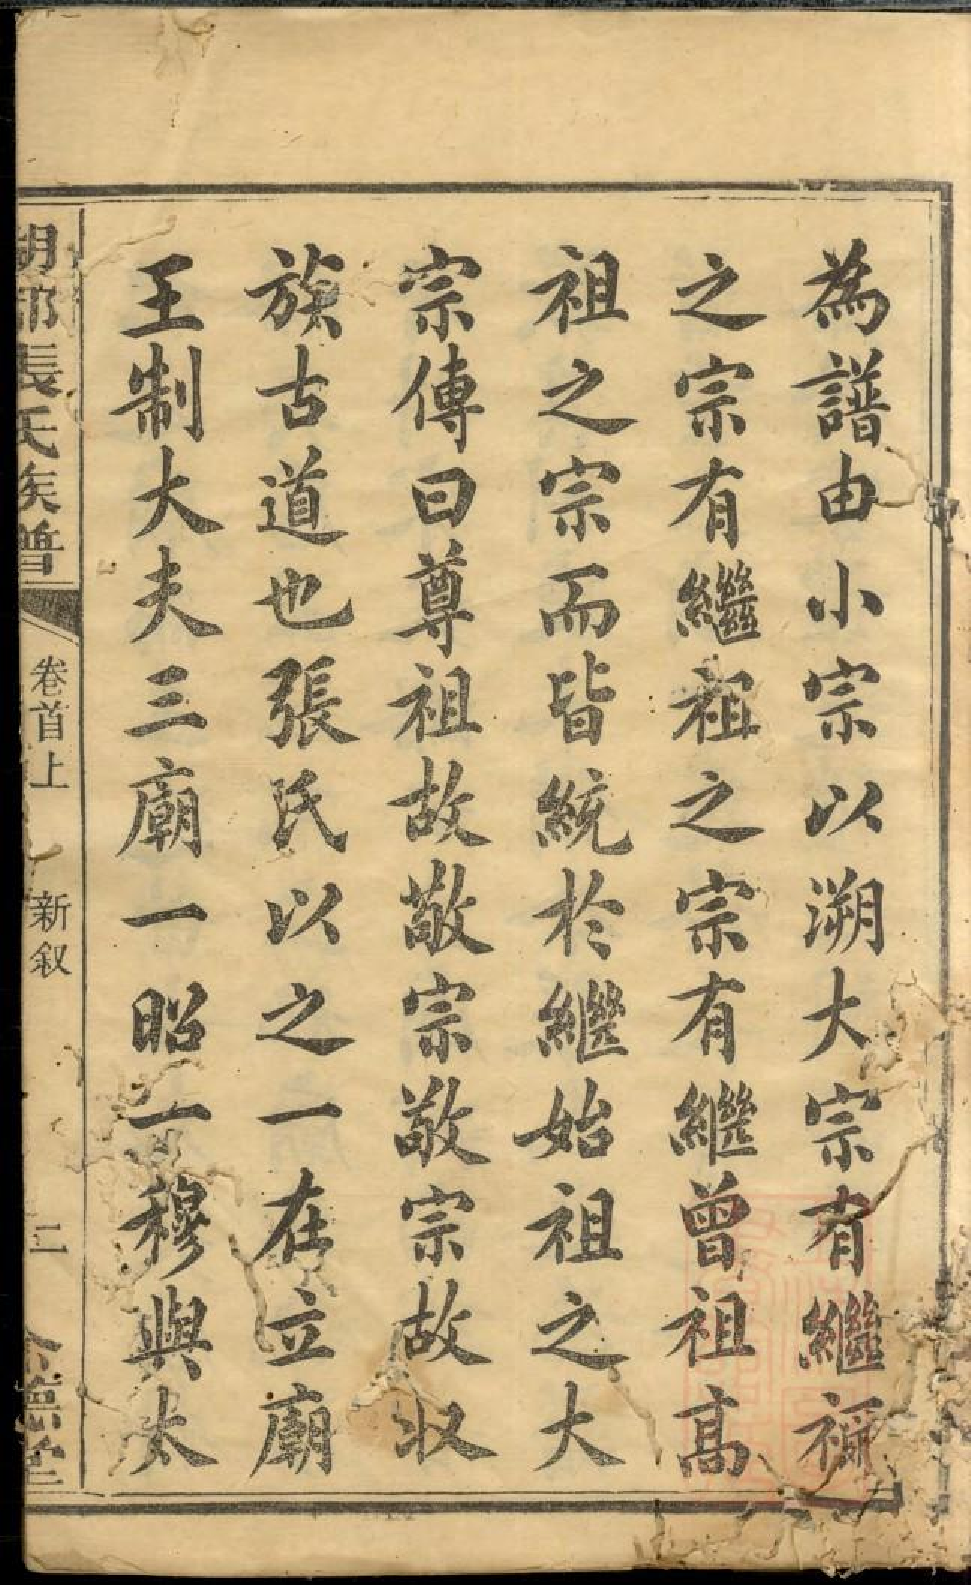 為譜由小宗以溯大宗有繼禰
之宗有繼祖之宗有繼曾祖高
祖之宗而皆統於繼始祖之大
宗傳曰尊祖故敬宗敬宗故收
族古道也張氏以之一在立廟
王制大夫三廟一昭一穆與太
胡部張氏族譜
卷首上
新叙
二
德堂